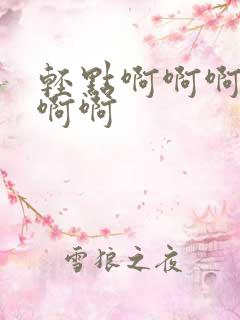 輕點啊啊啊
啊啊
雪狼之夜